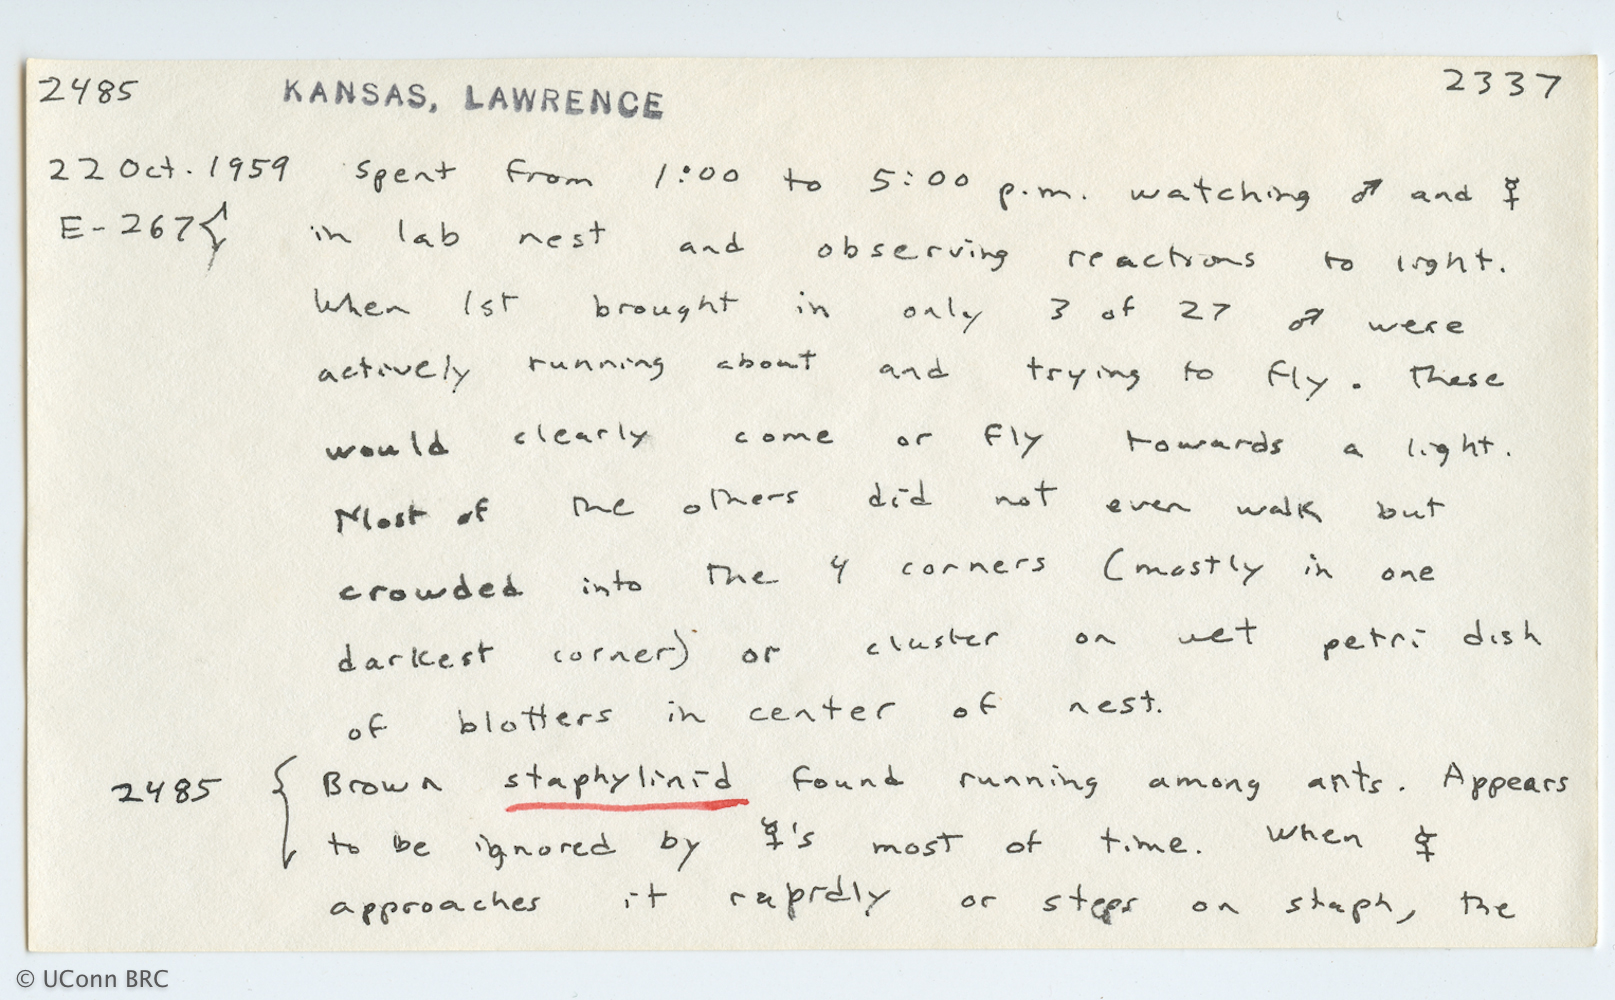 2485 KANSAS, LAWRENCE 2337
22 Oct. 1959 Spent from 1:00 to 5:00 p.m. watching ♂ and ☿
E-267{ in lab nest and observing reactions to light.
When 1st brought in only 3 of 27 ♂ were
actively running about and trying to fly. These
would clearly come or fly towards a light.
Most of the others did not even walk but
crowded into the 4 corners (mostly in one
darkest corner) or cluster on wet petri dish
of blotters in center of nest.
2485 { Brown staphylinid found running among ants. Appears
to be ignored by ☿'s most of time. When ☿
approaches it rapidly or steps on staph, the
© UConn BRC